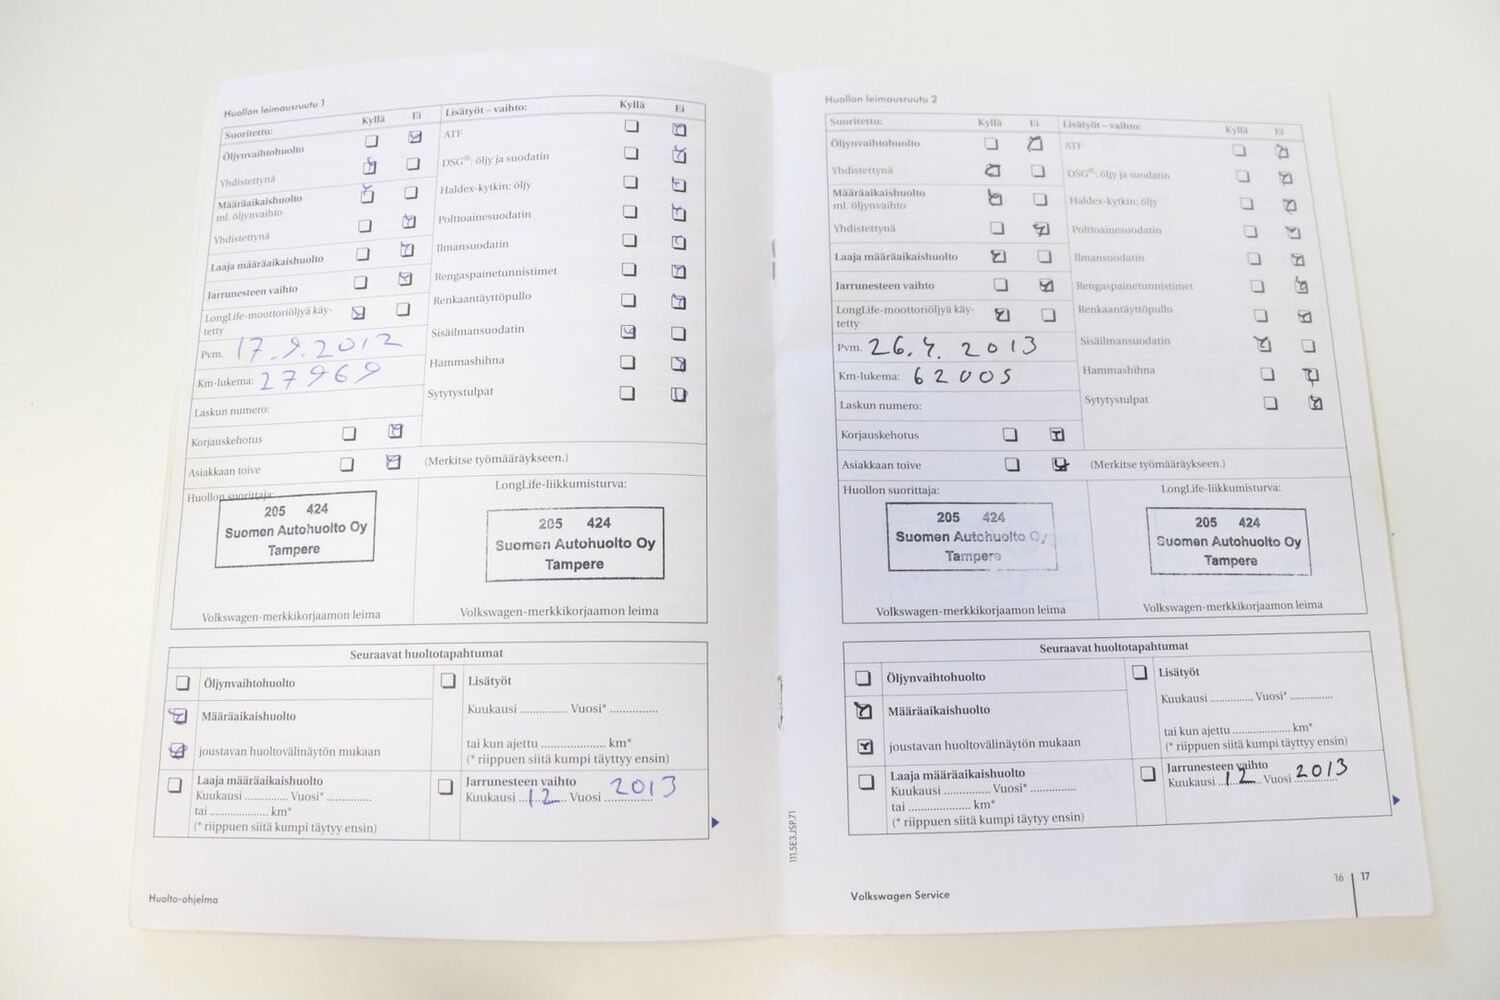 Huollon leimausruutu 1
Suoritettu: Kyllä Ei
Öljynvaihtohuolto
Yhdistettynä
Määräaikaishuolto
ml. öljynvaihto
Yhdistettynä
Laaja määräaikaishuolto
Jarrunesteen vaihto
LongLife-moottoriöljyä käy-
tetty
Pvm. 17.9.2012
Km-lukema: 27969
Laskun numero:
Korjauskehotus
Asiakkaan toive
Lisätyöt – vaihto: Kyllä Ei
ATF
DSG®: öljy ja suodatin
Haldex-kytkin: öljy
Polttoainesuodatin
Ilmansuodatin
Rengaspainetunnistimet
Renkaantäyttöpullo
Sisäilmansuodatin
Hammashihna
Sytytystulpat
(Merkitse työmääräykseen.)
Huollon suorittaja:
205 424
Suomen Autohuolto Oy
Tampere
Volkswagen-merkkikorjaamon leima
LongLife-liikkumisturva:
205 424
Suomen Autohuolto Oy
Tampere
Volkswagen-merkkikorjaamon leima
Seuraavat huoltotapahtumat
Öljynvaihtohuolto
Määräaikaishuolto
joustavan huoltovälinäytön mukaan
Laaja määräaikaishuolto
Kuukausi .............. Vuosi* ..............
tai .................... km*
(* riippuen siitä kumpi täytyy ensin)
Lisätyöt
Kuukausi .............. Vuosi* ..............
tai kun ajettu .................... km*
(* riippuen siitä kumpi täyttyy ensin)
Jarrunesteen vaihto
Kuukausi 12 Vuosi 2013
Huolto-ohjelma
Huollon leimausruutu 2
Suoritettu: Kyllä Ei
Öljynvaihtohuolto
Yhdistettynä
Määräaikaishuolto
ml. öljynvaihto
Yhdistettynä
Laaja määräaikaishuolto
Jarrunesteen vaihto
LongLife-moottoriöljyä käy-
tetty
Pvm. 26.4.2013
Km-lukema: 62005
Laskun numero:
Korjauskehotus
Asiakkaan toive
Lisätyöt – vaihto: Kyllä Ei
ATF
DSG®: öljy ja suodatin
Haldex-kytkin: öljy
Polttoainesuodatin
Ilmansuodatin
Rengaspainetunnistimet
Renkaantäyttöpullo
Sisäilmansuodatin
Hammashihna
Sytytystulpat
(Merkitse työmääräykseen.)
Huollon suorittaja:
205 424
Suomen Autohuolto Oy
Tampere
Volkswagen-merkkikorjaamon leima
LongLife-liikkumisturva:
205 424
Suomen Autohuolto Oy
Tampere
Volkswagen-merkkikorjaamon leima
Seuraavat huoltotapahtumat
Öljynvaihtohuolto
Määräaikaishuolto
joustavan huoltovälinäytön mukaan
Laaja määräaikaishuolto
Kuukausi .............. Vuosi* ..............
tai .................... km*
(* riippuen siitä kumpi täytyy ensin)
Lisätyöt
Kuukausi .............. Vuosi* ..............
tai kun ajettu .................... km*
(* riippuen siitä kumpi täyttyy ensin)
Jarrunesteen vaihto
Kuukausi 12 Vuosi 2013
111.5E3.JSP.71
Volkswagen Service
16 | 17